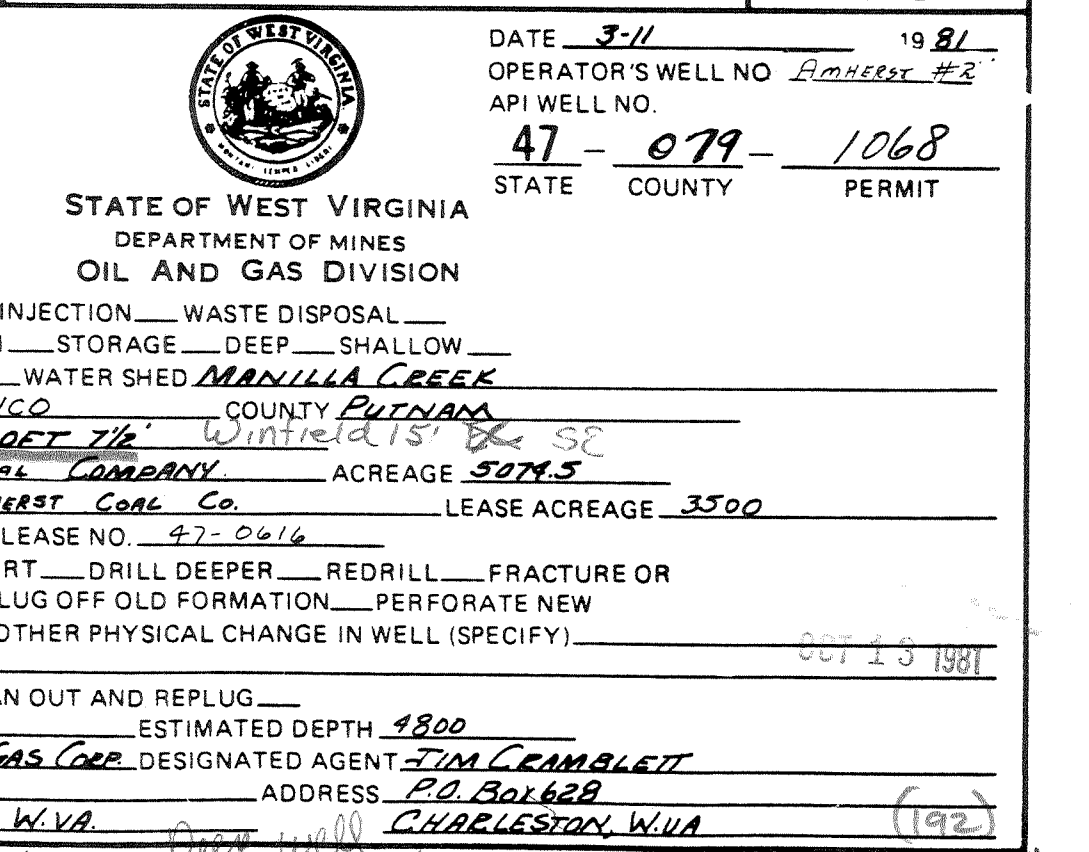 DATE 3-11 1981
OPERATOR'S WELL NO AMHERST #2
API WELL NO.
47 - 079 - 1068
STATE COUNTY PERMIT
STATE OF WEST VIRGINIA
MONTANI SEMPER LIBERI
STATE OF WEST VIRGINIA
DEPARTMENT OF MINES
OIL AND GAS DIVISION
INJECTION WASTE DISPOSAL
STORAGE DEEP SHALLOW
WATER SHED MANILLA CREEK
ICO COUNTY PUTNAM
OFT 7½' Winfield 15' SE
AL COMPANY ACREAGE 5074.5
HERST COAL CO. LEASE ACREAGE 3500
LEASE NO. 47-0616
RT DRILL DEEPER REDRILL FRACTURE OR
LUG OFF OLD FORMATION PERFORATE NEW
OTHER PHYSICAL CHANGE IN WELL (SPECIFY)
OCT 13 1981
AN OUT AND REPLUG
ESTIMATED DEPTH 4800
GAS CORP. DESIGNATED AGENT JIM CRAMBLETT
ADDRESS P.O. BOX 628
W.VA. CHARLESTON, W.VA (192)
well